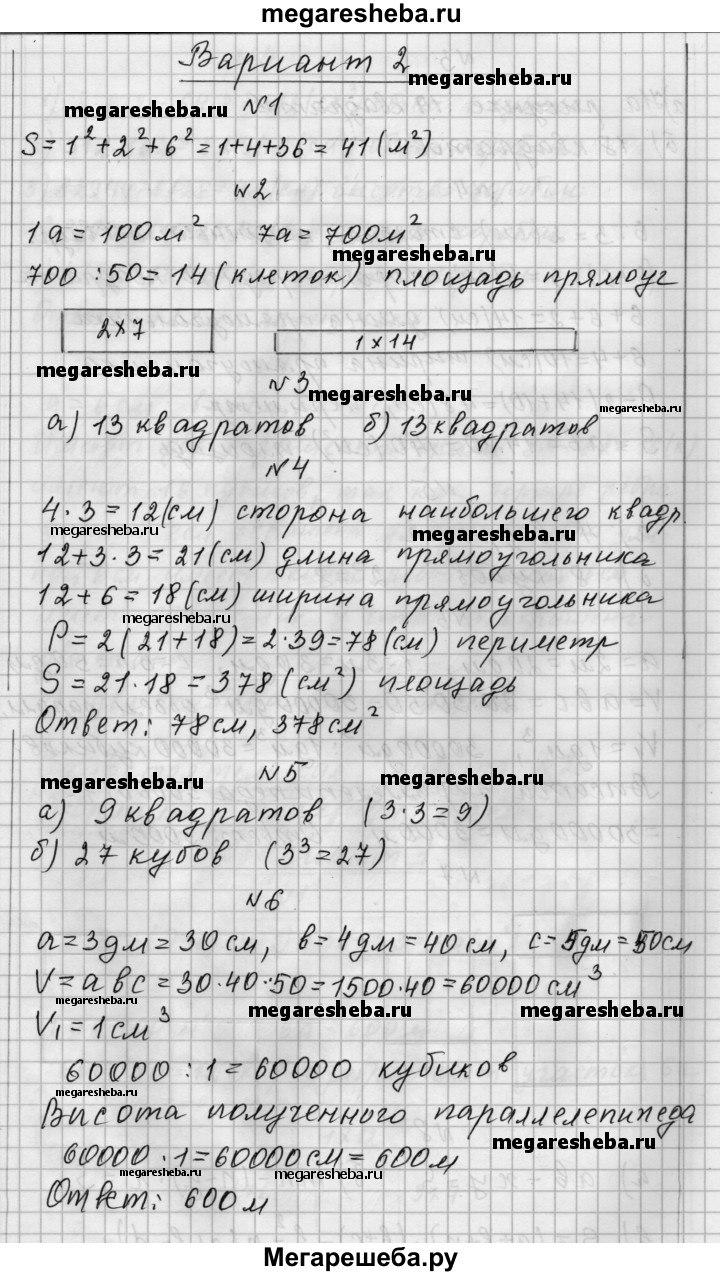 megaresheba.ru
Вариант 2
megaresheba.ru
№1
megaresheba.ru
S = 1² + 2² + 6² = 1+4+36 = 41 (м²)
№2
1 а = 100 м² 7а = 700 м²
megaresheba.ru
700 : 50 = 14 (клеток) площадь прямоуг
2×7
1×14
megaresheba.ru
№3
megaresheba.ru
megaresheba.ru
а) 13 квадратов б) 13 квадратов
№4
4·3 = 12 (см) сторона наибольшего квадр.
megaresheba.ru
megaresheba.ru
12+3·3 = 21 (см) длина прямоугольника
12+6 = 18 (см) ширина прямоугольника
megaresheba.ru
P = 2(21+18) = 2·39 = 78 (см) периметр
S = 21·18 = 378 (см²) площадь
Ответ: 78 см, 378 см²
№5
megaresheba.ru
megaresheba.ru
а) 9 квадратов (3·3 = 9)
б) 27 кубов (3³ = 27)
№6
а = 3дм = 30 см, в = 4дм = 40 см, с = 5дм = 50 см
V = а в с = 30·40·50 = 1500·40 = 60000 см³
megaresheba.ru
megaresheba.ru
megaresheba.ru
V₁ = 1 см³
60000 : 1 = 60000 кубиков
megaresheba.ru
Высота полученного параллелепипеда
megaresheba.ru
60000·1 = 60000 см = 600 м
megaresheba.ru
megaresheba.ru
Ответ: 600 м
Мегарешеба.ру